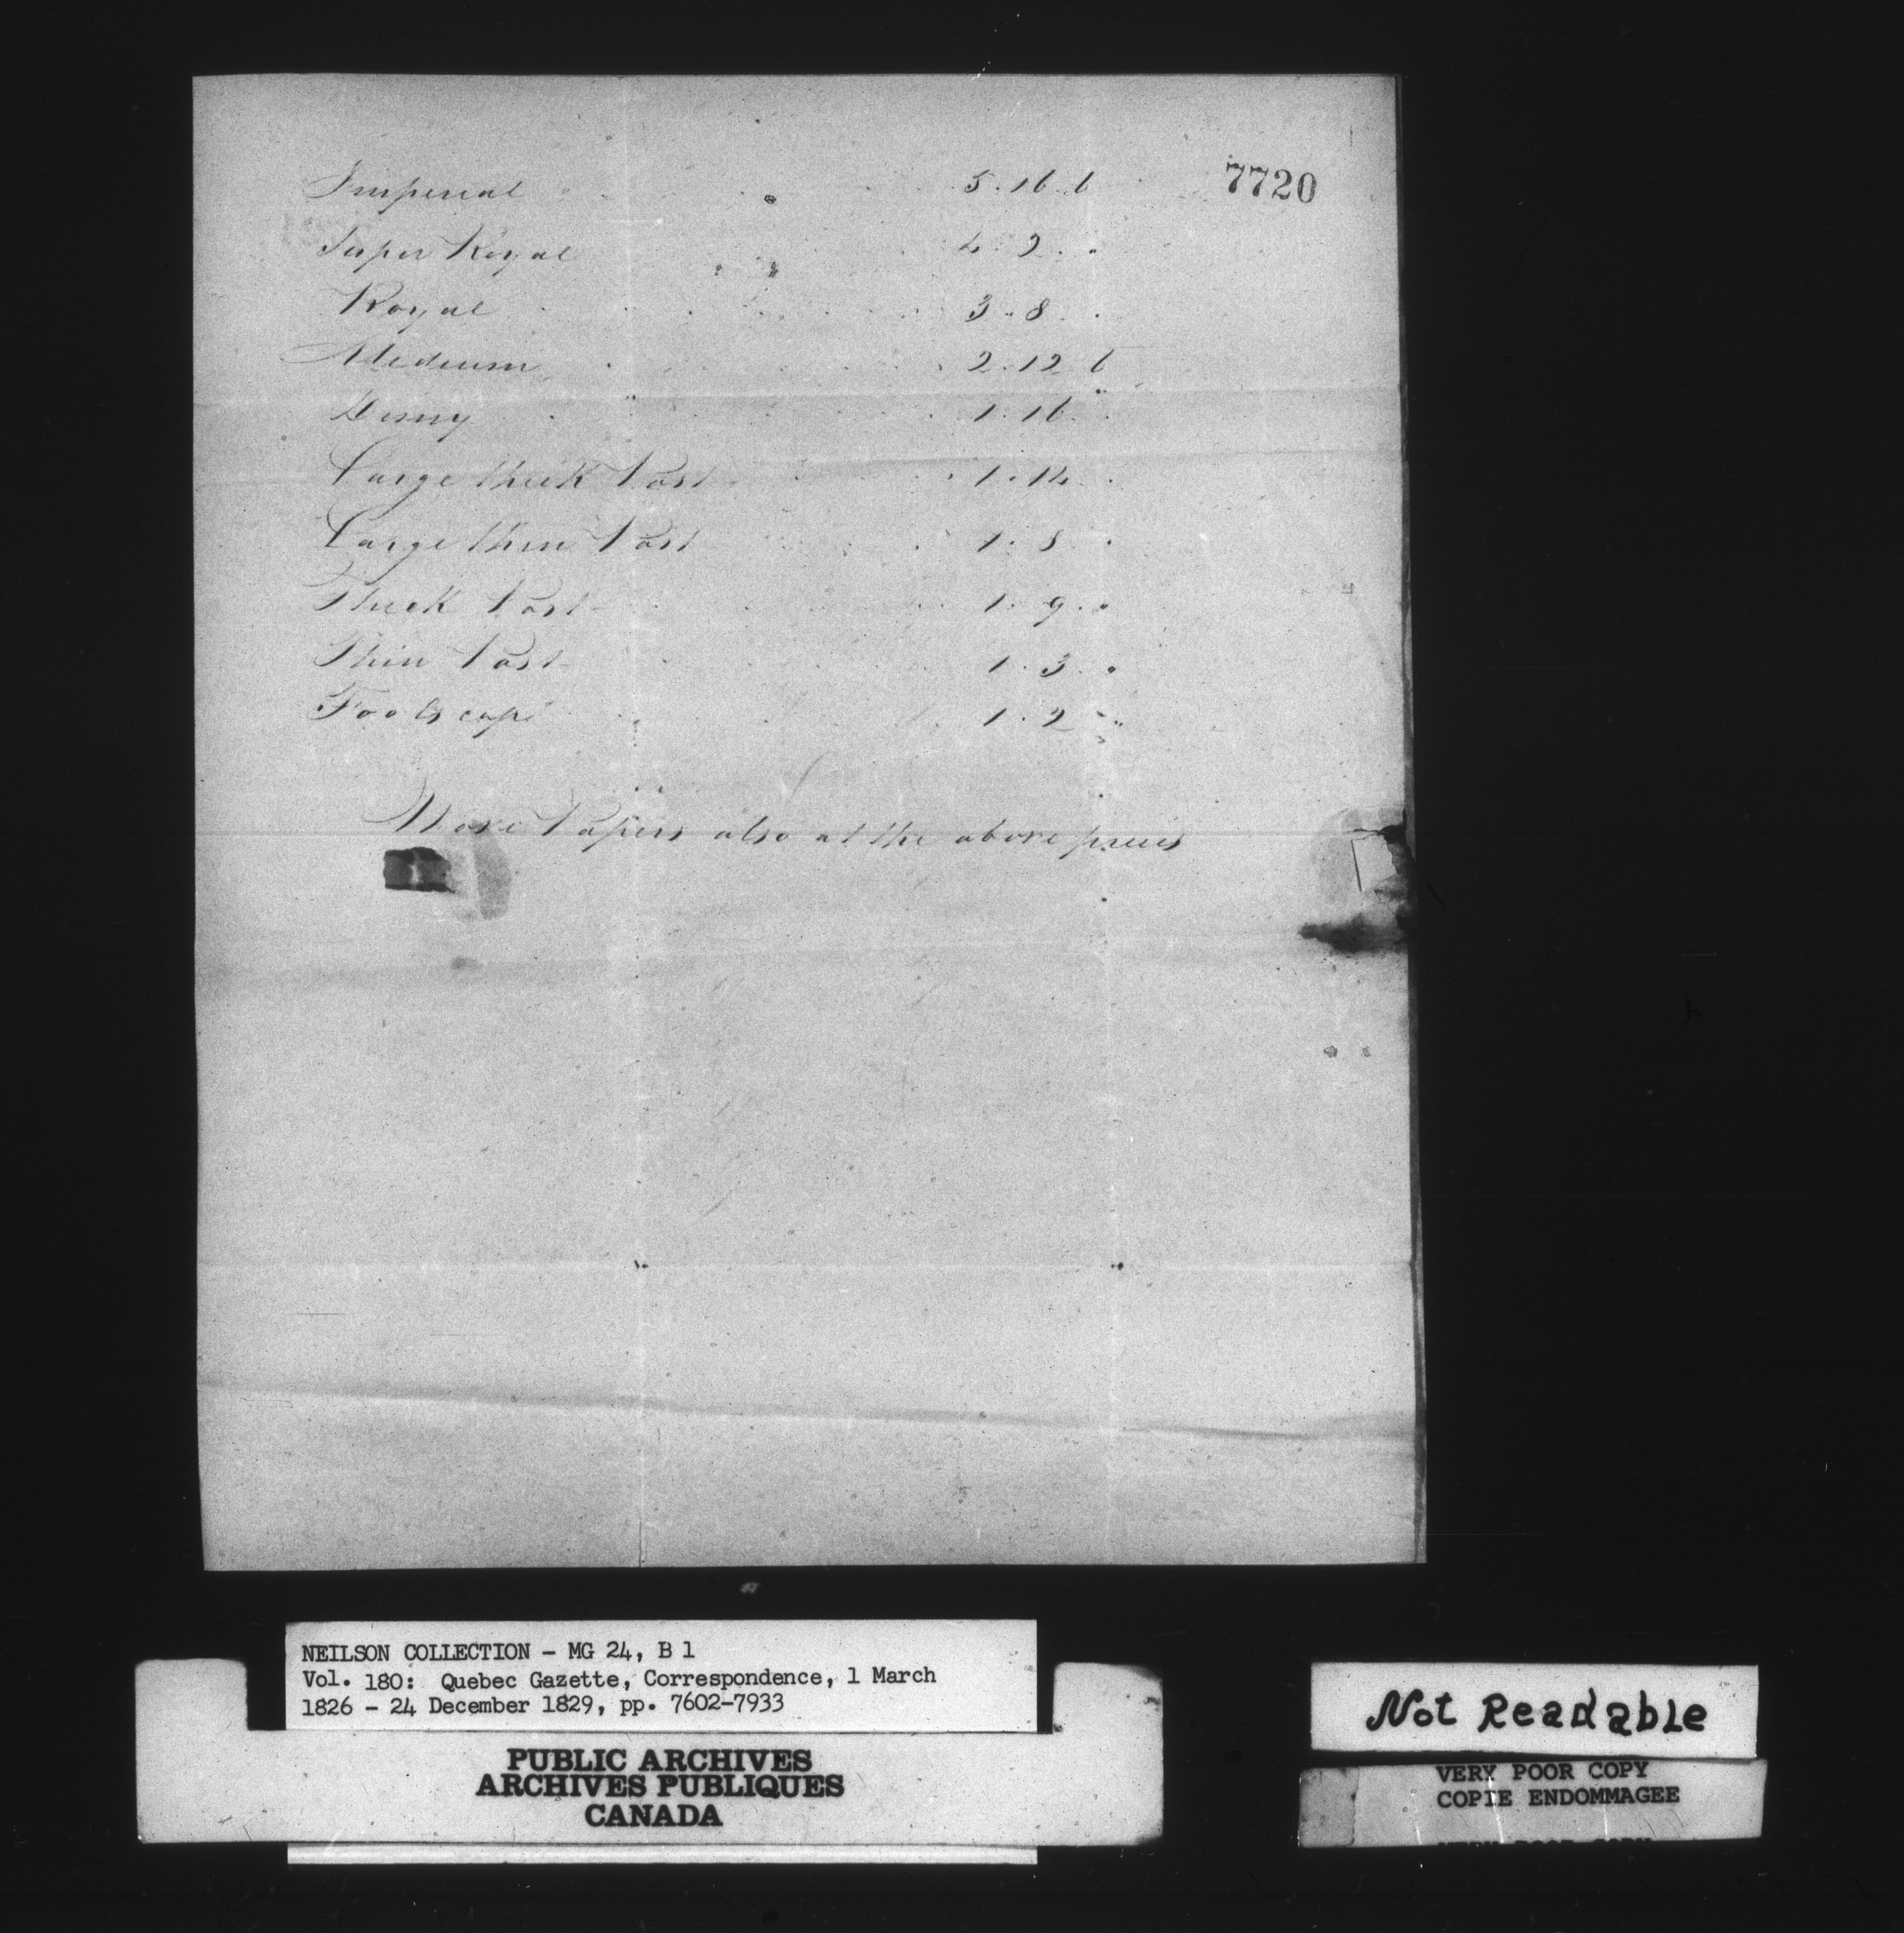 7720
Imperial 5. 16. 6
Super Royal 4. 2. "
Royal 3. 8. "
Medium 2. 12. 6
Demy 1. 16. "
Large thick Post 1. 14. "
Large thin Post 1. 8. "
Thick Post 1. 9. "
Thin Post 1. 3. "
Foolscap 1. 2. "
Wove Papers also at the above prices
NEILSON COLLECTION - MG 24, B 1
Vol. 180: Quebec Gazette, Correspondence, 1 March
1826 - 24 December 1829, pp. 7602-7933
PUBLIC ARCHIVES
ARCHIVES PUBLIQUES
CANADA
Not Readable
VERY POOR COPY
COPIE ENDOMMAGEE